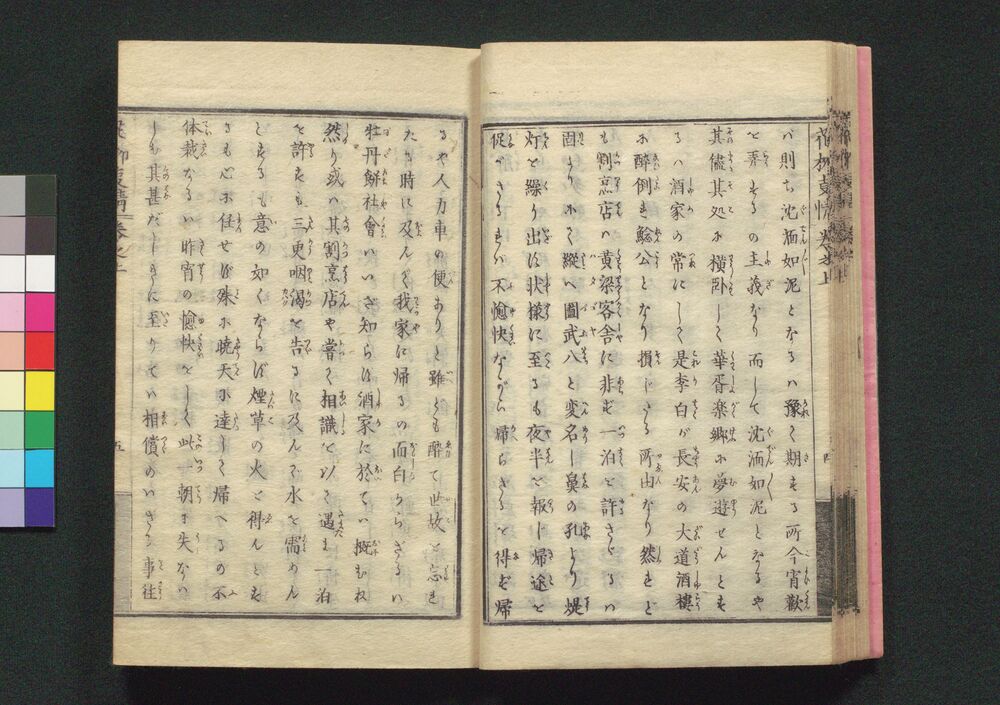 バ則ち沈湎如泥となるハ豫て期する所今宵歡
を弄するの主義なり而して沈湎如泥となるや
其儘其処に横臥して華胥楽郷に夢遊せんとす
るハ酒家の常にして是李白が長安の大道酒樓
に醉倒も鯰公となり損じたる所由なり然れど
も割烹店ハ黄粱客舎に非ず一泊を許さゞるハ
固よりにて縦へ圖武八と変名し鼻の孔より堤
灯を繰り出す状様に至るも夜半を報じ帰途を
促べさるれバ不愉快ながら帰らざるを得ず帰
るや人力車の便ありと雖ども醉て世故を忘れ
たる時に及んで我家に帰るの面白からざるハ
牡丹餅社會ハいざ知らず酒家に於てハ概むね
然り或ハ其割烹店や嘗て相識を以て遇ま一泊
を許すも三更咽渇を告るに及んで水を需めん
とするも意の如くならず煙草の火を得んとす
るも心に任せず殊に曉天に達して帰へるの不
体裁なるハ昨宵の愉快をして此一朝に失なハ
しも其甚だしきに至りてハ相償のハざる事往
花柳事情 卷之上
五